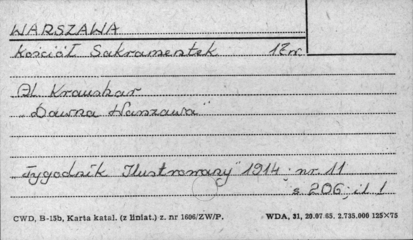 WARSZAWA
Kościół Sakramentek 1Zn.
Al. Kraushar
"Dawna Warszawa"
"Tygodnik Ilustrowany" 1914 nr. 11
s 206; il 1
CWD, B-15b, Karta katal. (z liniat.) z. nr 1606/ZW/P. WDA, 31, 20.07.65. 2.735.000 125×75